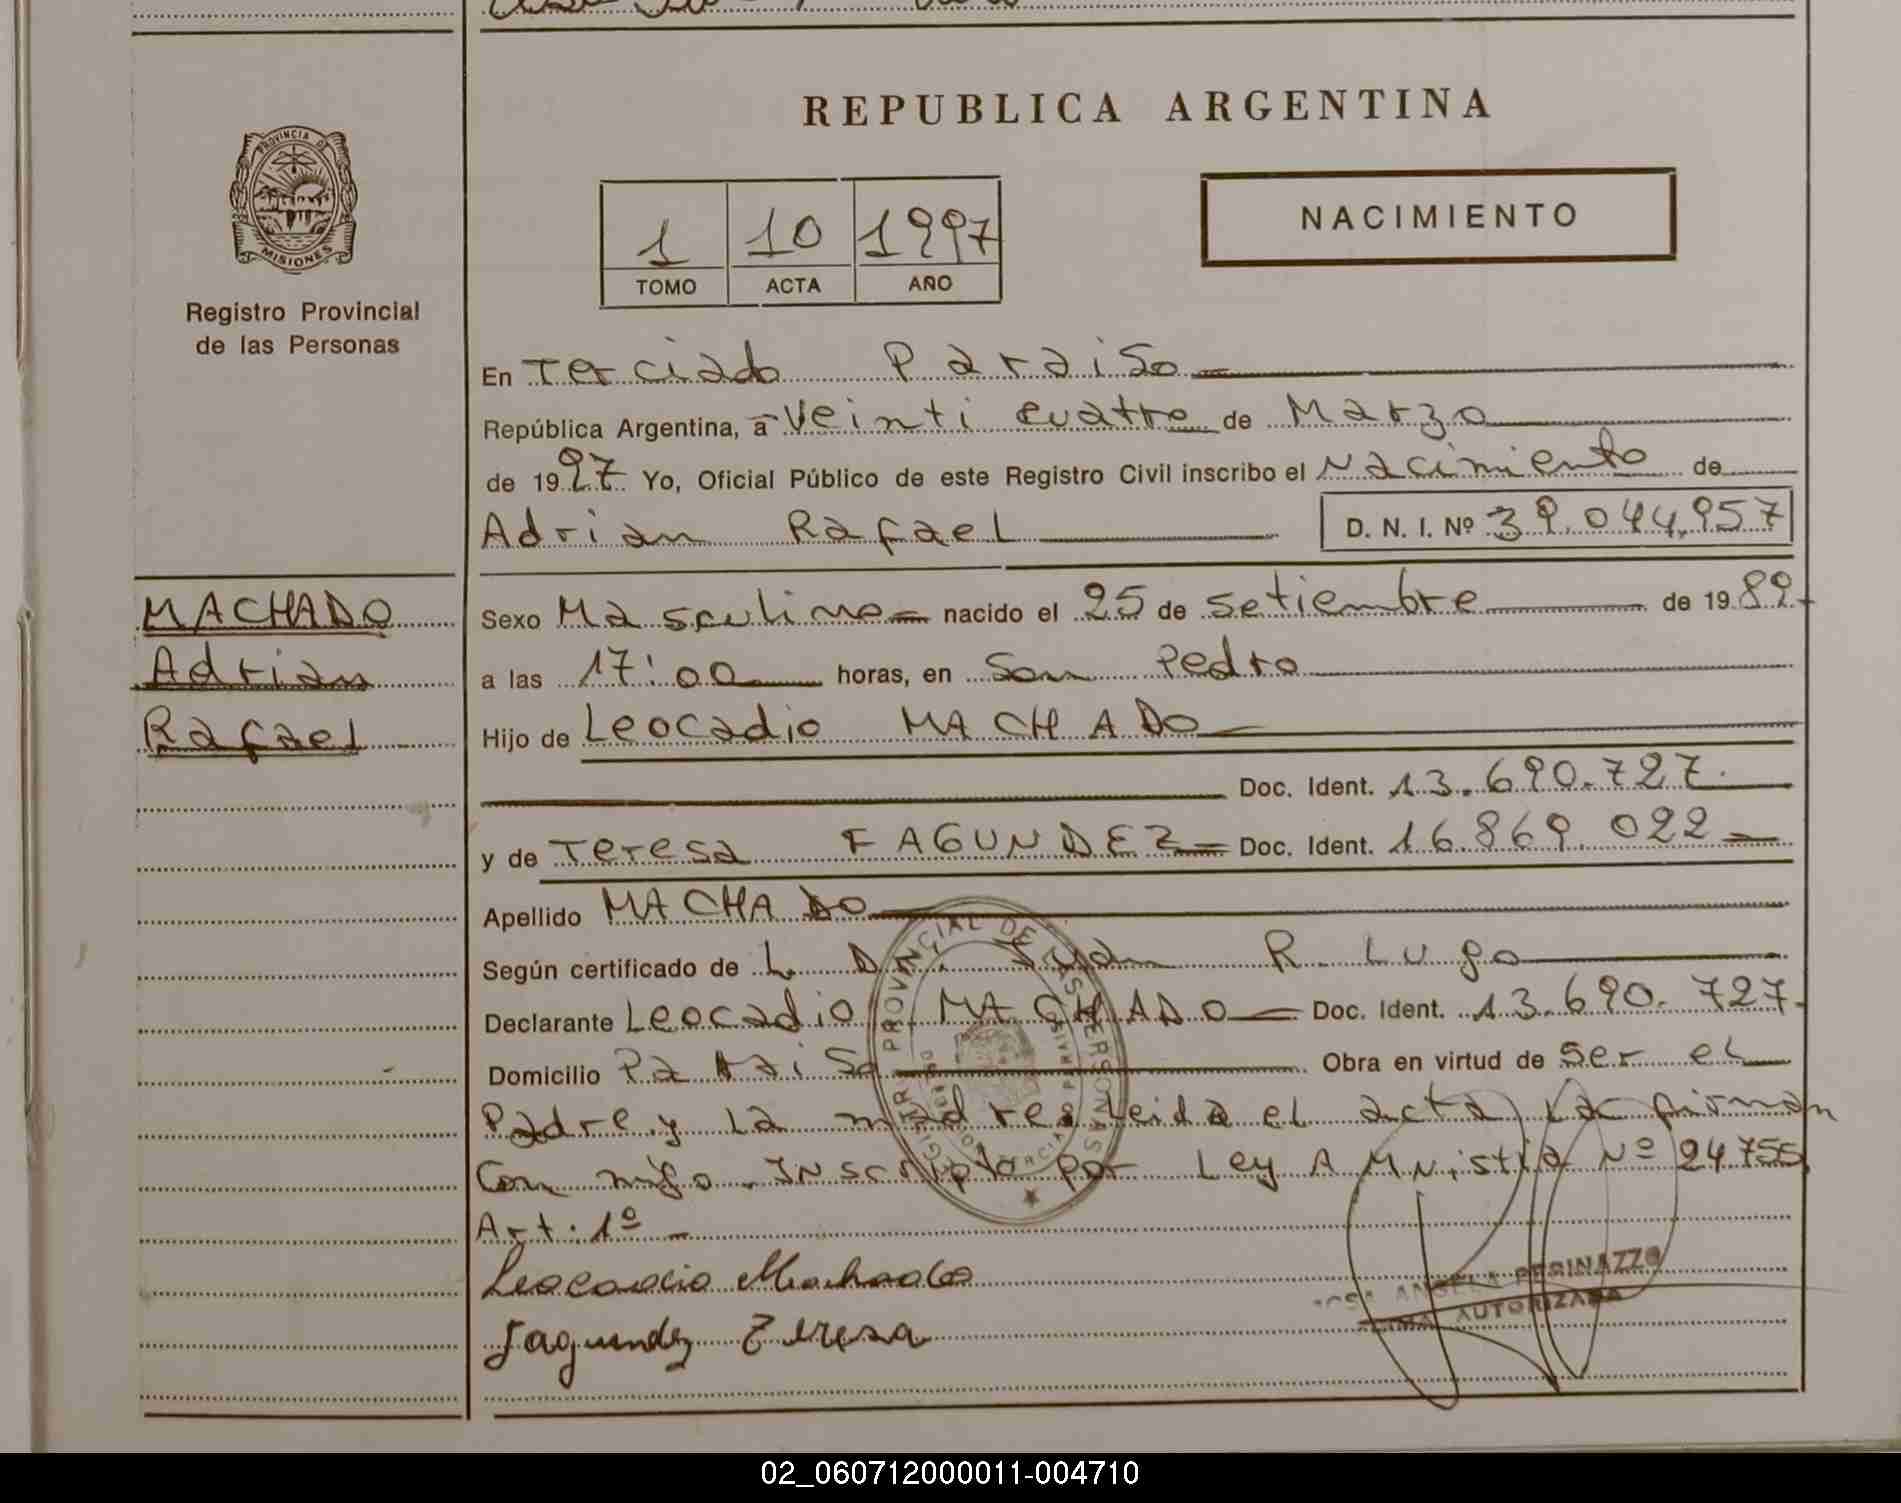 REPUBLICA ARGENTINA
PROVINCIA DE
MISIONES
Registro Provincial
de las Personas
1 10 1997
TOMO ACTA AÑO
NACIMIENTO
En Terciado Paraiso
República Argentina, a Veinti cuatro de Marzo
de 1997 Yo, Oficial Público de este Registro Civil inscribo el Nacimiento de
Adrian Rafael D. N. I. Nº 39.044.957
MACHADO
Adrian
Rafael
Sexo Masculino nacido el 25 de Setiembre de 1989
a las 17:00 horas, en San Pedro
Hijo de Leocadio MACHADO
Doc. Ident. 13.690.727.
y de Teresa FAGUNDEZ Doc. Ident. 16.869.022
Apellido MACHADO
Según certificado de L. D. Juan R. Lugo
Declarante Leocadio MACHADO Doc. Ident. 13.690.727.
Domicilio Paraiso Obra en virtud de Ser el
Padre y La madre Leida el acta La firman
Con migo. Inscripto por Ley AMNistia Nº 24755
Art. 1º
Leocadio Machado
Fagundez Teresa
ANGELA PERINAZZO
AUTORIZADA
02_060712000011-004710